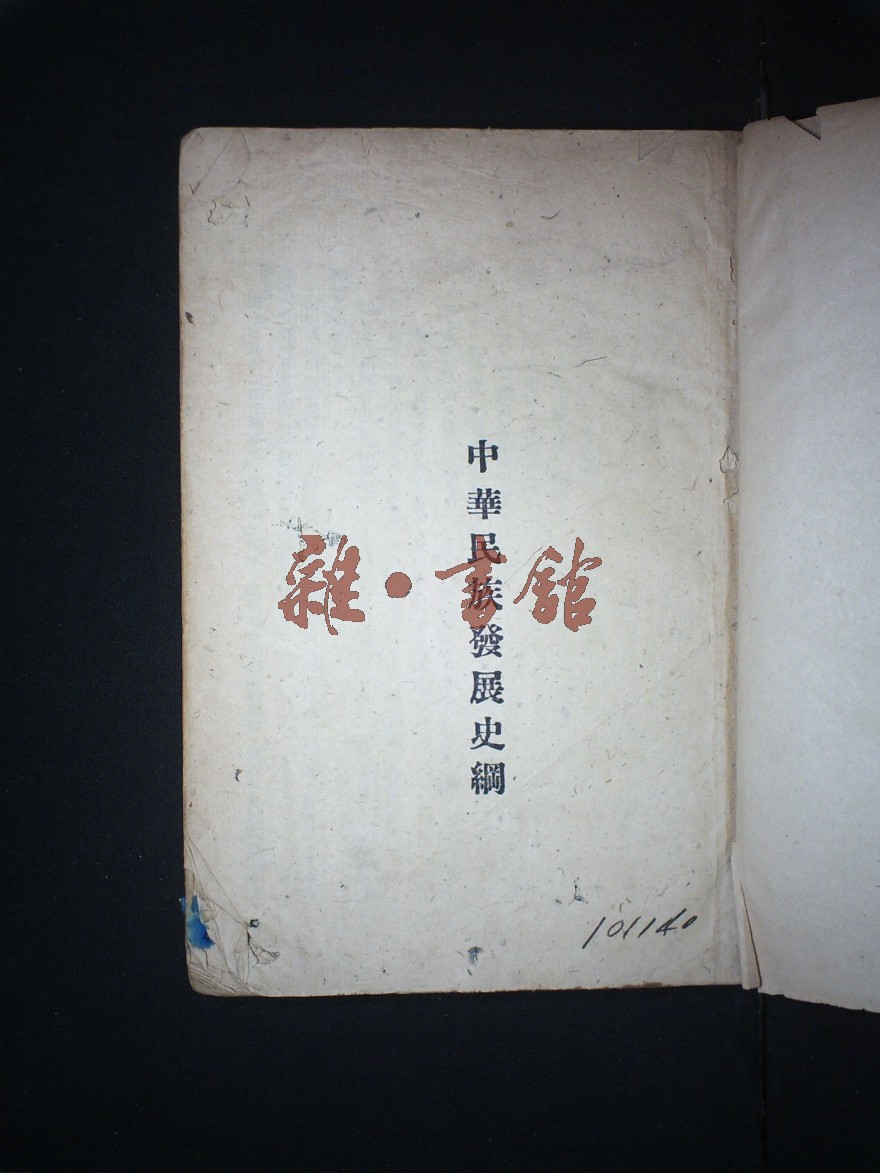 中華民族發展史綱
雜·書館
101140